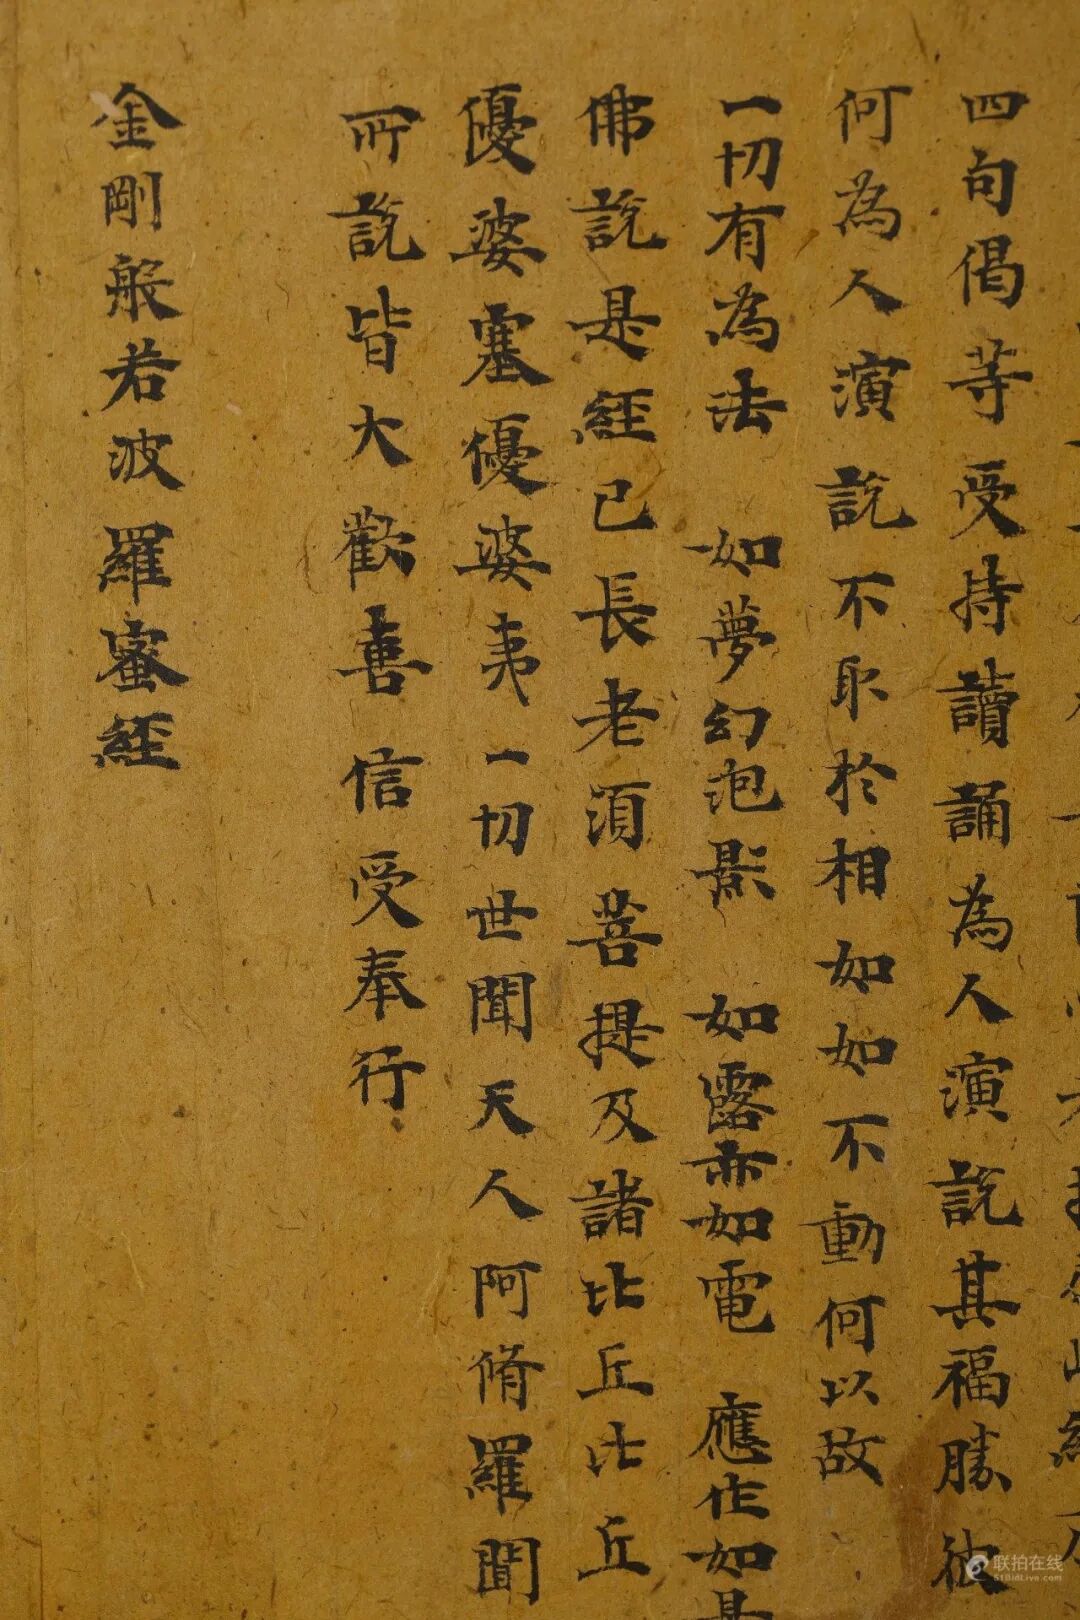 四句偈等受持讀誦為人演說其福勝彼
何為人演說不取於相如如不動何以故
一切有為法 如夢幻泡影 如露亦如電 應作如是
佛說是經已長老須菩提及諸比丘比丘
優婆塞優婆夷一切世間天人阿脩羅聞
所說皆大歡喜信受奉行
金剛般若波羅蜜經
联拍在线
51BidLive.com